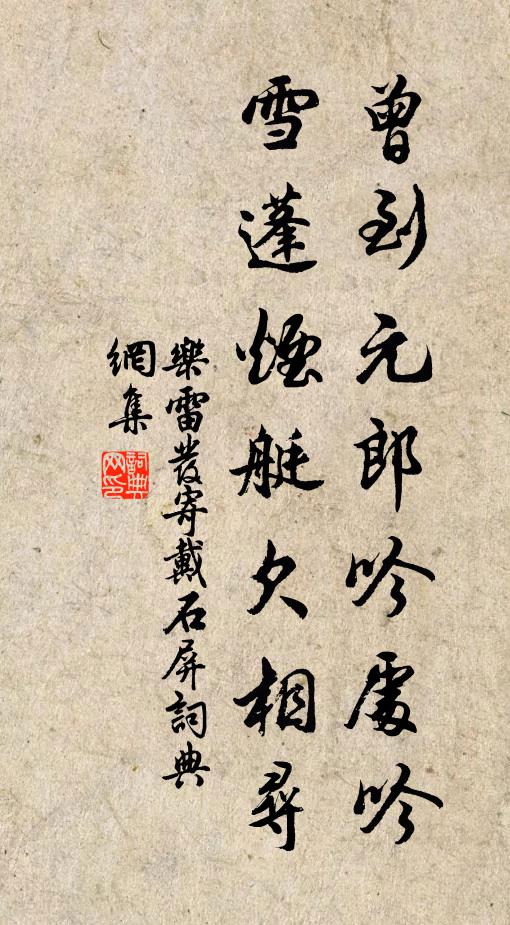 曾到元郎吟處吟
雪蓬煙艇欠相尋
樂雷發寄戴石屏詞典
網集
詞典
网印